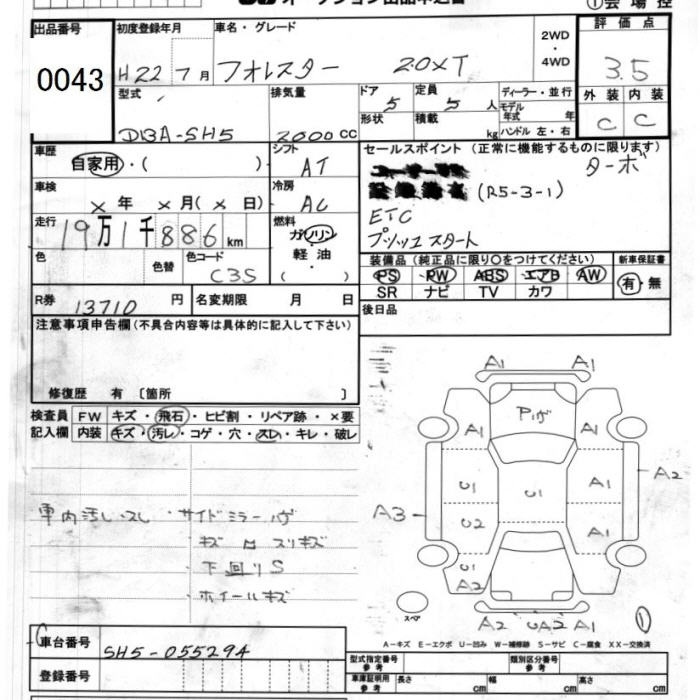 オークション出品申込書
①会場控
出品番号 0043
初度登録年月 H22 7月
車名・グレード フォレスター 2.0XT
2WD・4WD
評価点 3.5
外装 C 内装 C
型式 DBA-SH5
排気量 2000cc
ドア 5 定員 5人
形状 積載 kg
ディーラー・並行
モデル年式 年式
ハンドル 左・右
車歴 自家用・( )
シフト AT
車検 ×年 ×月(×日)
冷房 AC
走行 19万1千886km
燃料 ガソリン・軽油・( )
色 色替 色コード C3S
R券 13710円
名変期限 月 日
セールスポイント(正常に機能するものに限ります)
ターボ
(R5-3-1)
ETC
プッシュスタート
装備品(純正品に限り○をつけてください)
PS PW ABS エアB AW
SR ナビ TV カワ
新車保証書
有・無
後日品
注意事項申告欄(不具合内容等は具体的に記入して下さい)
修復歴 有〔箇所 〕
検査員記入欄
FW キズ・飛石・ヒビ割・リペア跡・×要
内装 キズ・汚レ・コゲ・穴・スレ・キレ・破レ
車内汚レ・スレ ・サイドミラー ハゲ
キズ ロ スリキズ
・下回リS
・ホイールキズ
A1 A1
Pハゲ
A1 A1
U1 U1 A1 A2
A3 U2 A1
U1
A2
スペア
A2 UA2 A1
①
A−キズ E−エクボ U−凹み W−補修跡 S−サビ C−腐食 XX−交換済
車台番号 SH5-055294
登録番号
型式指定番号 参考 類別区分番号 参考
車庫証明用 参考 長さ cm 幅 cm 高さ cm